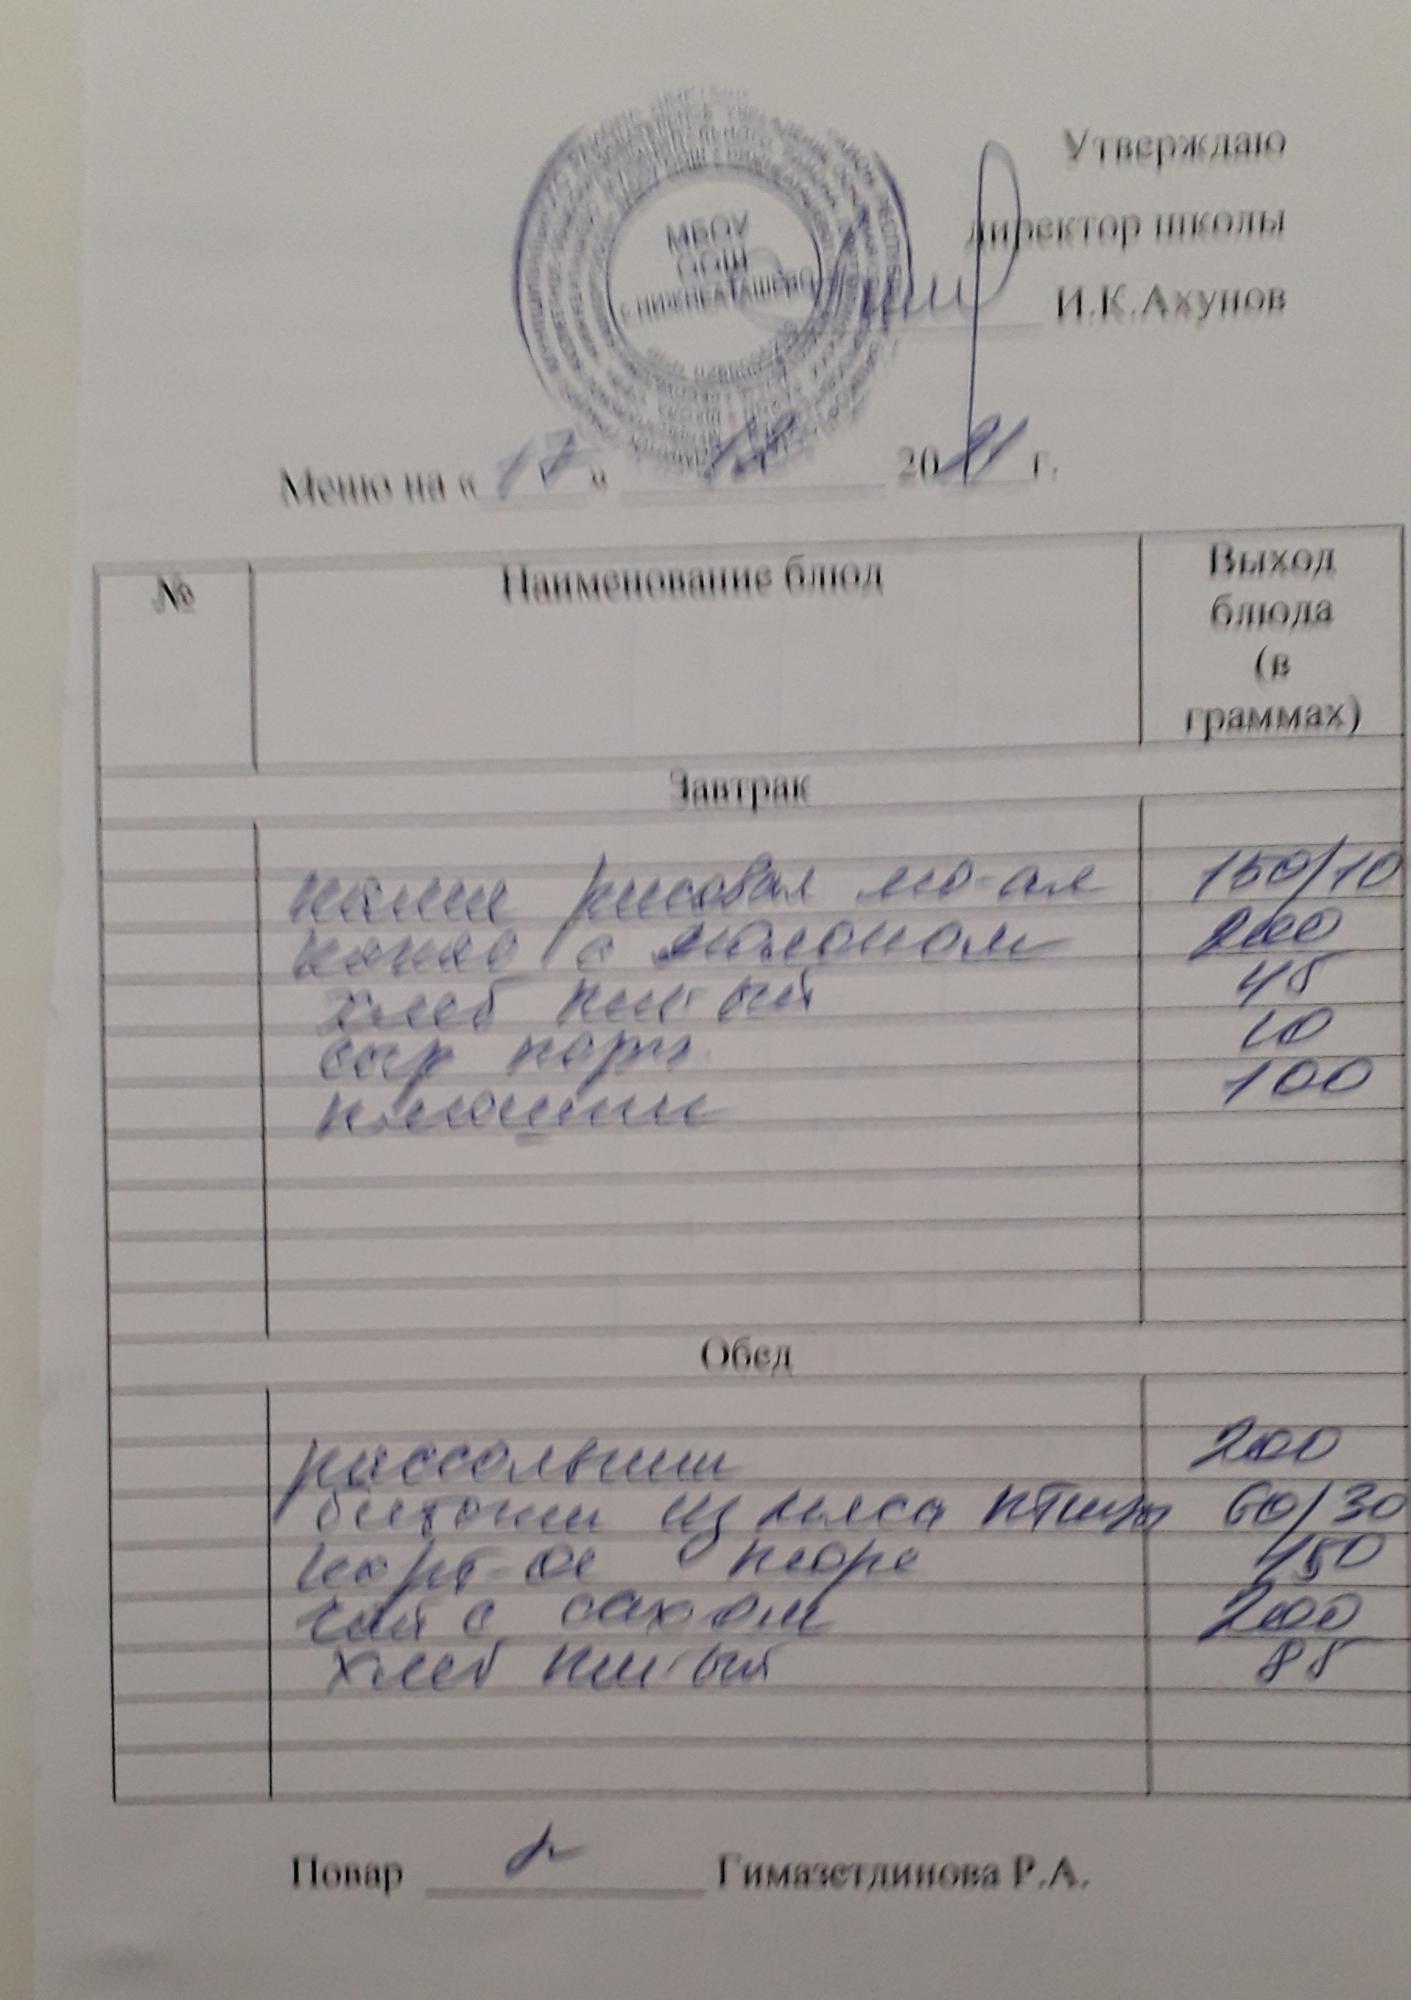 МБОУ
ООШ
с НИЖНЕАТАШЕВО
Утверждаю
директор школы
И.К.Ахунов
Меню на « 17 » 12 2021 г.
№ Наименование блюд Выход
блюда
(в
граммах)
Завтрак
каша рисовая мо-ая 150/10
какао с молоком 200
хлеб пш-ый 45
сыр порц. 10
100
Обед
рассольник 200
биточки из мяса птицы 60/30
карт-ое пюре 150
чай с сахом 200
хлеб пш-ый 85
Повар Гимазетдинова Р.А.